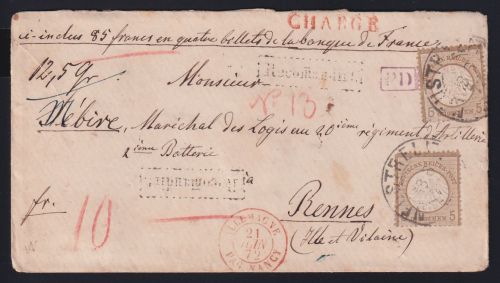 CHARGÉ
ci-inclus 85 francs en quatre billets de la banque de France.
12,5 Gr
Monsieur
Recomandirt
PD
No 13
Mébire, Maréchal des Logis au 20ième régiment d'Artillerie
2ième Batterie
à
fr.
10
Rennes
(Ille et Vilaine)
ALLEMAGNE
21
JUIN
72
PAR NANCY
STRELITZ
5
5
NEUSTRELITZ
5
5